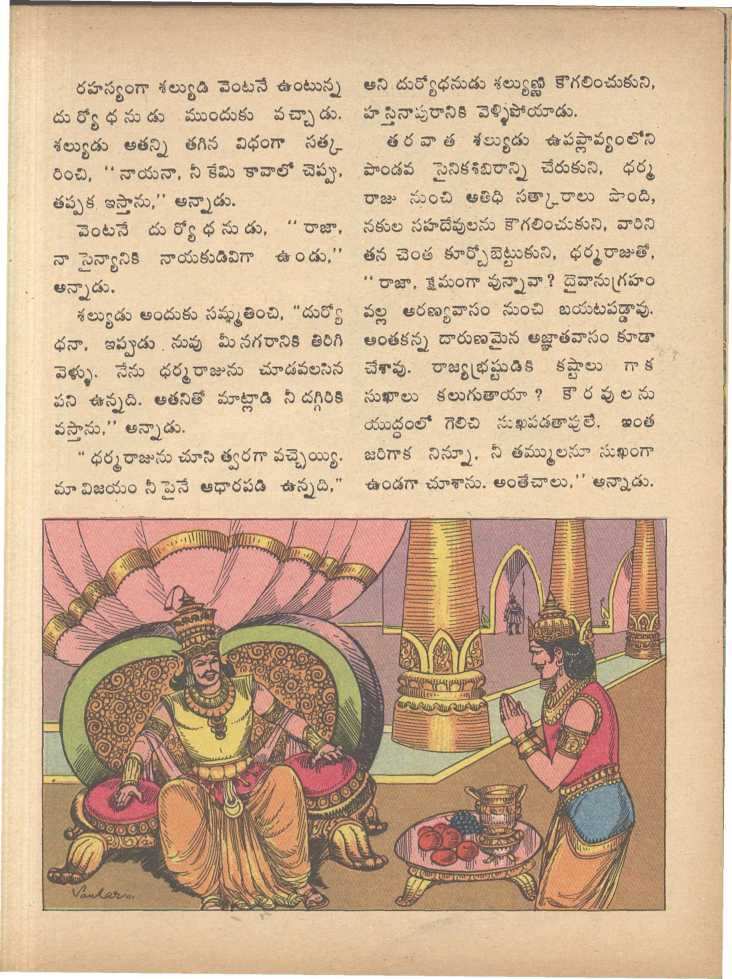 రహస్యంగా శల్యుడి వెంటనే ఉంటున్న
దుర్యోధనుడు ముందుకు వచ్చాడు.
శల్యుడు అతన్ని తగిన విధంగా సత్క
రించి, ‘‘నాయనా, నీ కేమి కావాలో చెప్పు.
తప్పక ఇస్తాను,’’ అన్నాడు.
వెంటనే దుర్యోధనుడు, ‘‘రాజా,
నా సైన్యానికి నాయకుడివిగా ఉండు,’’
అన్నాడు.
శల్యుడు అందుకు సమ్మతించి, ‘‘దుర్యో
ధనా, ఇప్పుడు నువు మీ నగరానికి తిరిగి
వెళ్ళు. నేను ధర్మరాజును చూడవలసిన
పని ఉన్నది. అతనితో మాట్లాడి నీ దగ్గిరికి
వస్తాను,’’ అన్నాడు.
‘‘ధర్మరాజును చూసి త్వరగా వచ్చెయ్యి.
మా విజయం నీ పైనే ఆధారపడి ఉన్నది,’’
అని దుర్యోధనుడు శల్యుణ్ణి కౌగలించుకుని,
హస్తినాపురానికి వెళ్ళిపోయాడు.
తరవాత శల్యుడు ఉపప్లావ్యంలోని
పాండవ సైనికశిబిరాన్ని చేరుకుని, ధర్మ
రాజు నుంచి అతిథి సత్కారాలు పొంది,
నకుల సహదేవులను కౌగలించుకుని, వారిని
తన చెంత కూర్చోబెట్టుకుని, ధర్మరాజుతో,
‘‘రాజా, క్షేమంగా వున్నావా? దైవానుగ్రహం
వల్ల అరణ్యవాసం నుంచి బయటపడ్డావు.
అంతకన్న దారుణమైన అజ్ఞాతవాసం కూడా
చేశావు. రాజ్యభ్రష్టుడికి కష్టాలు గాక
సుఖాలు కలుగుతాయా? కౌరవులను
యుద్ధంలో గెలిచి సుఖపడతావులే. ఇంత
జరిగాక నిన్నూ, నీ తమ్ములనూ సుఖంగా
ఉండగా చూశాను. అంతేచాలు,’’ అన్నాడు.
Sankar